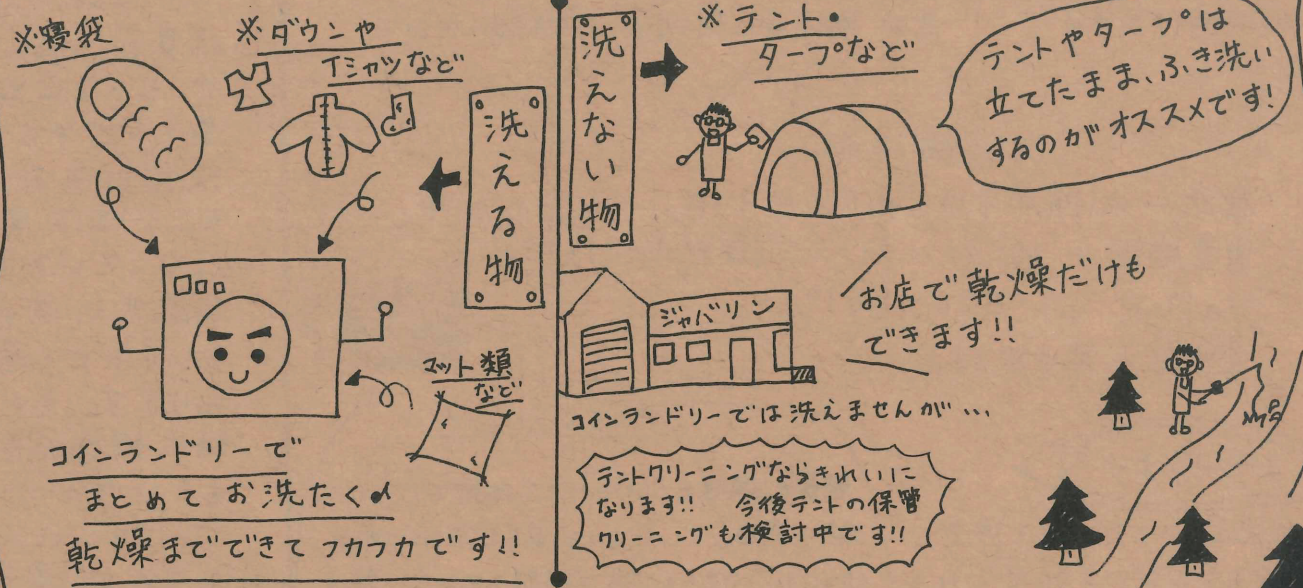 ※寝袋
※ダウンや
Tシャツなど
洗える物
マット類
など
コインランドリーで
まとめてお洗たく♪
乾燥までできてフカフカです!!
洗えない物
※テント・
タープなど
テントやタープは
立てたまま、ふき洗い
するのがオススメです!
ジャバリン
お店で乾燥だけも
できます!!
コインランドリーでは洗えませんが…
テントクリーニングならきれいに
なります!! 今後テントの保管
クリーニングも検討中です!!